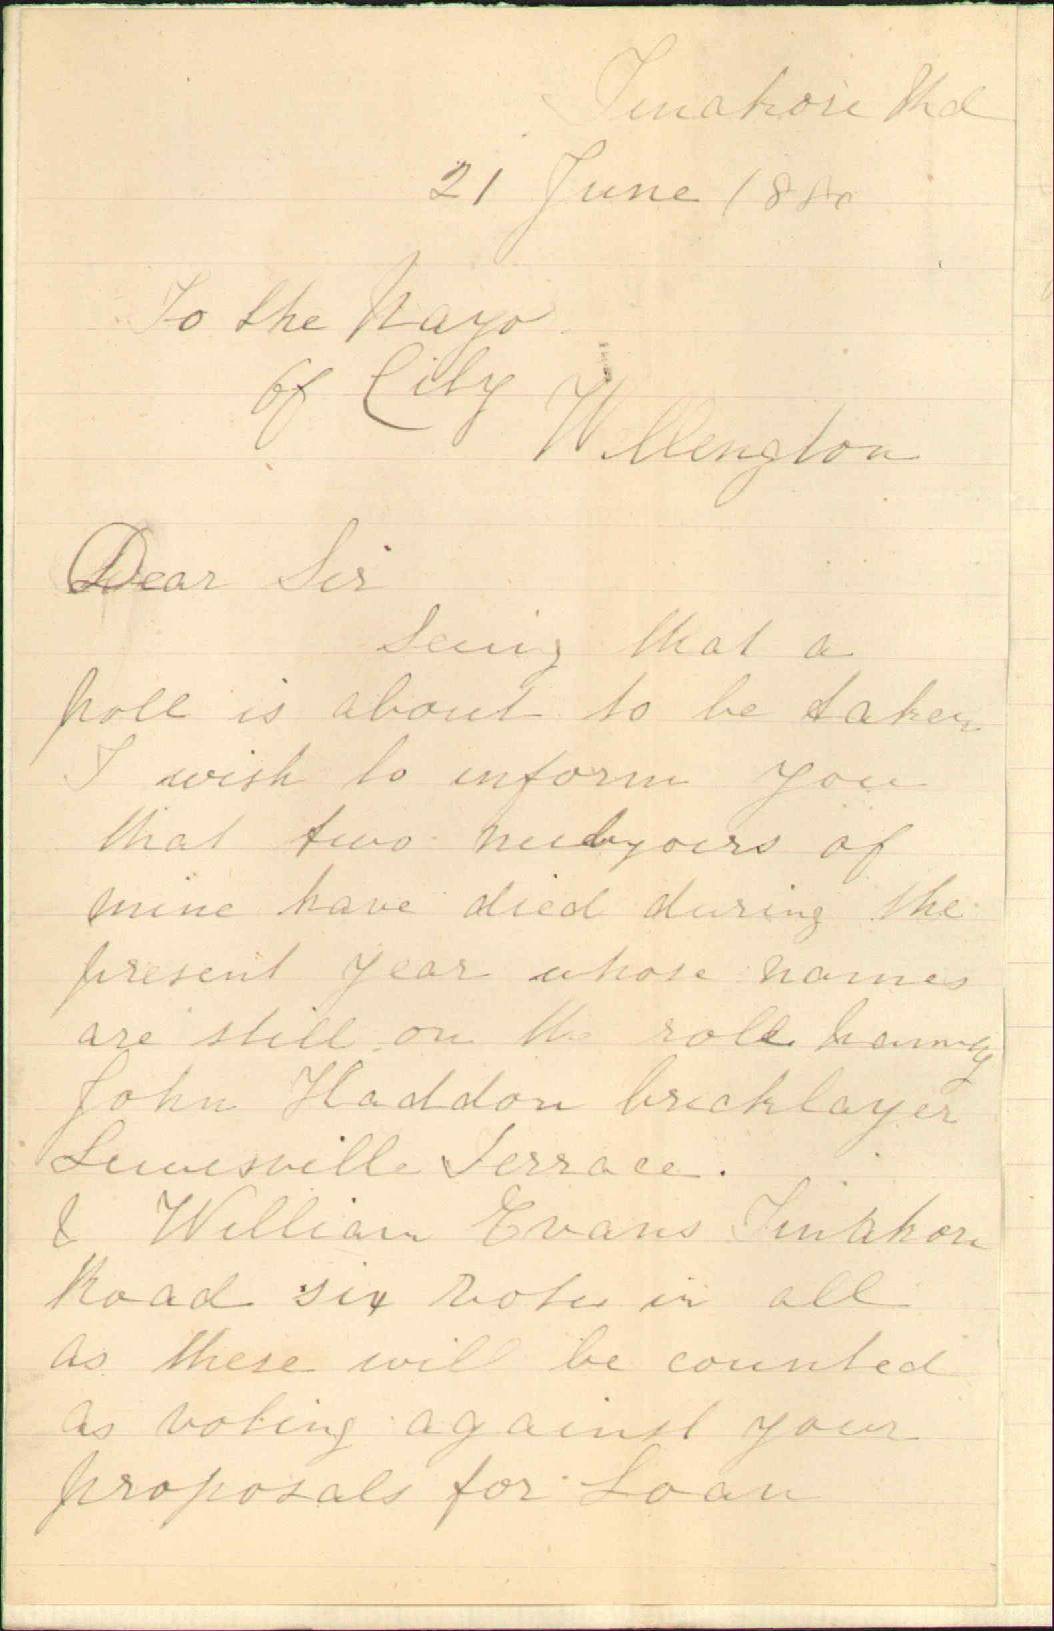 Tinakore Rd
21 June 1880
To the Mayo
of City
Wllengton
Dear Sir
Seeing that a
poll is about to be taken
I wish to inform you
that two neibyours of
mine have died during the
present year whose names
are still on the role
John Haddon bricklayer
Lewisville Terrace.
& William Evans Tinakore
Road six votes in all
as these will be counted
as voting against your
proposals for Loan